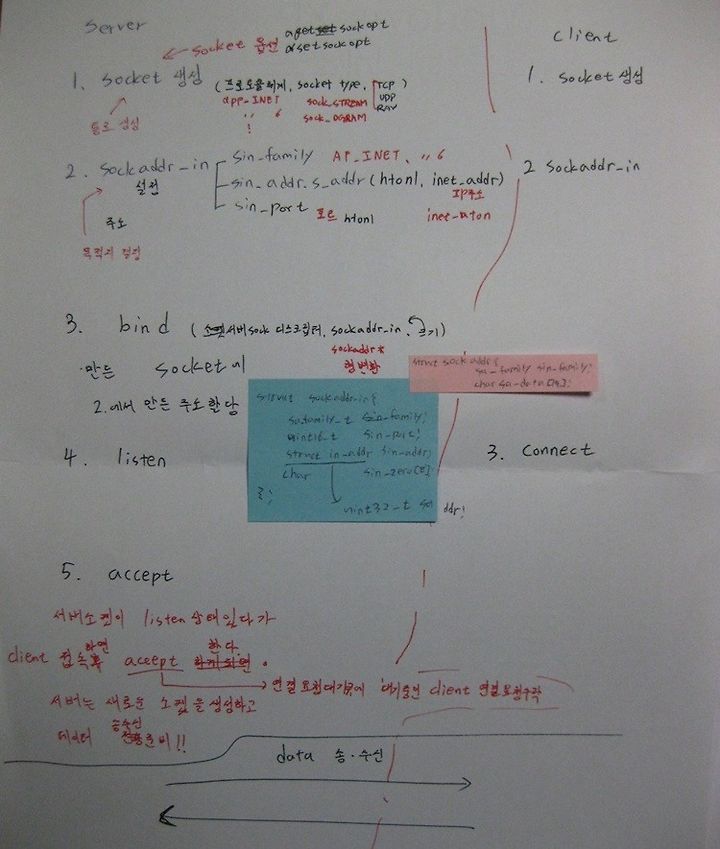 Server
client
socket 옵션 getsockopt
setsockopt
1. socket 생성 (프로토콜체계, socket type, TCP
UDP
RAW
1. socket 생성
INET sock_STREAM
〃 6 sock_DGRAM
통로 생성
2. sockaddr_in sin_family AF_INET, 〃 6
설정
sin_addr.s_addr (htonl, inet_addr)
IP주소
sin_port 포트 htonl inet_aton
2 sockaddr_in
주소
목적지 설정
3. bind (서버sock 디스크립터, sockaddr_in, 크기)
sockaddr*
형변환
만든 socket에
2.에서 만든 주소할당
struct sockaddr{
sa_family sin_family;
char sa_data[14];
struct sockaddr_in{
sa_family_t sin_family;
uint16_t sin_port;
struct in_addr sin_addr;
char sin_zero[8];
};
uint32_t
addr;
4. listen
3. connect
5. accept
서버소켓이 listen 상태있다가
client 접속하면 accept 한다.
연결요청대기 대기중인 client 연결요청수락
서버는 새로운 소켓을 생성하고
데이터 송수신 준비!!
data 송·수신